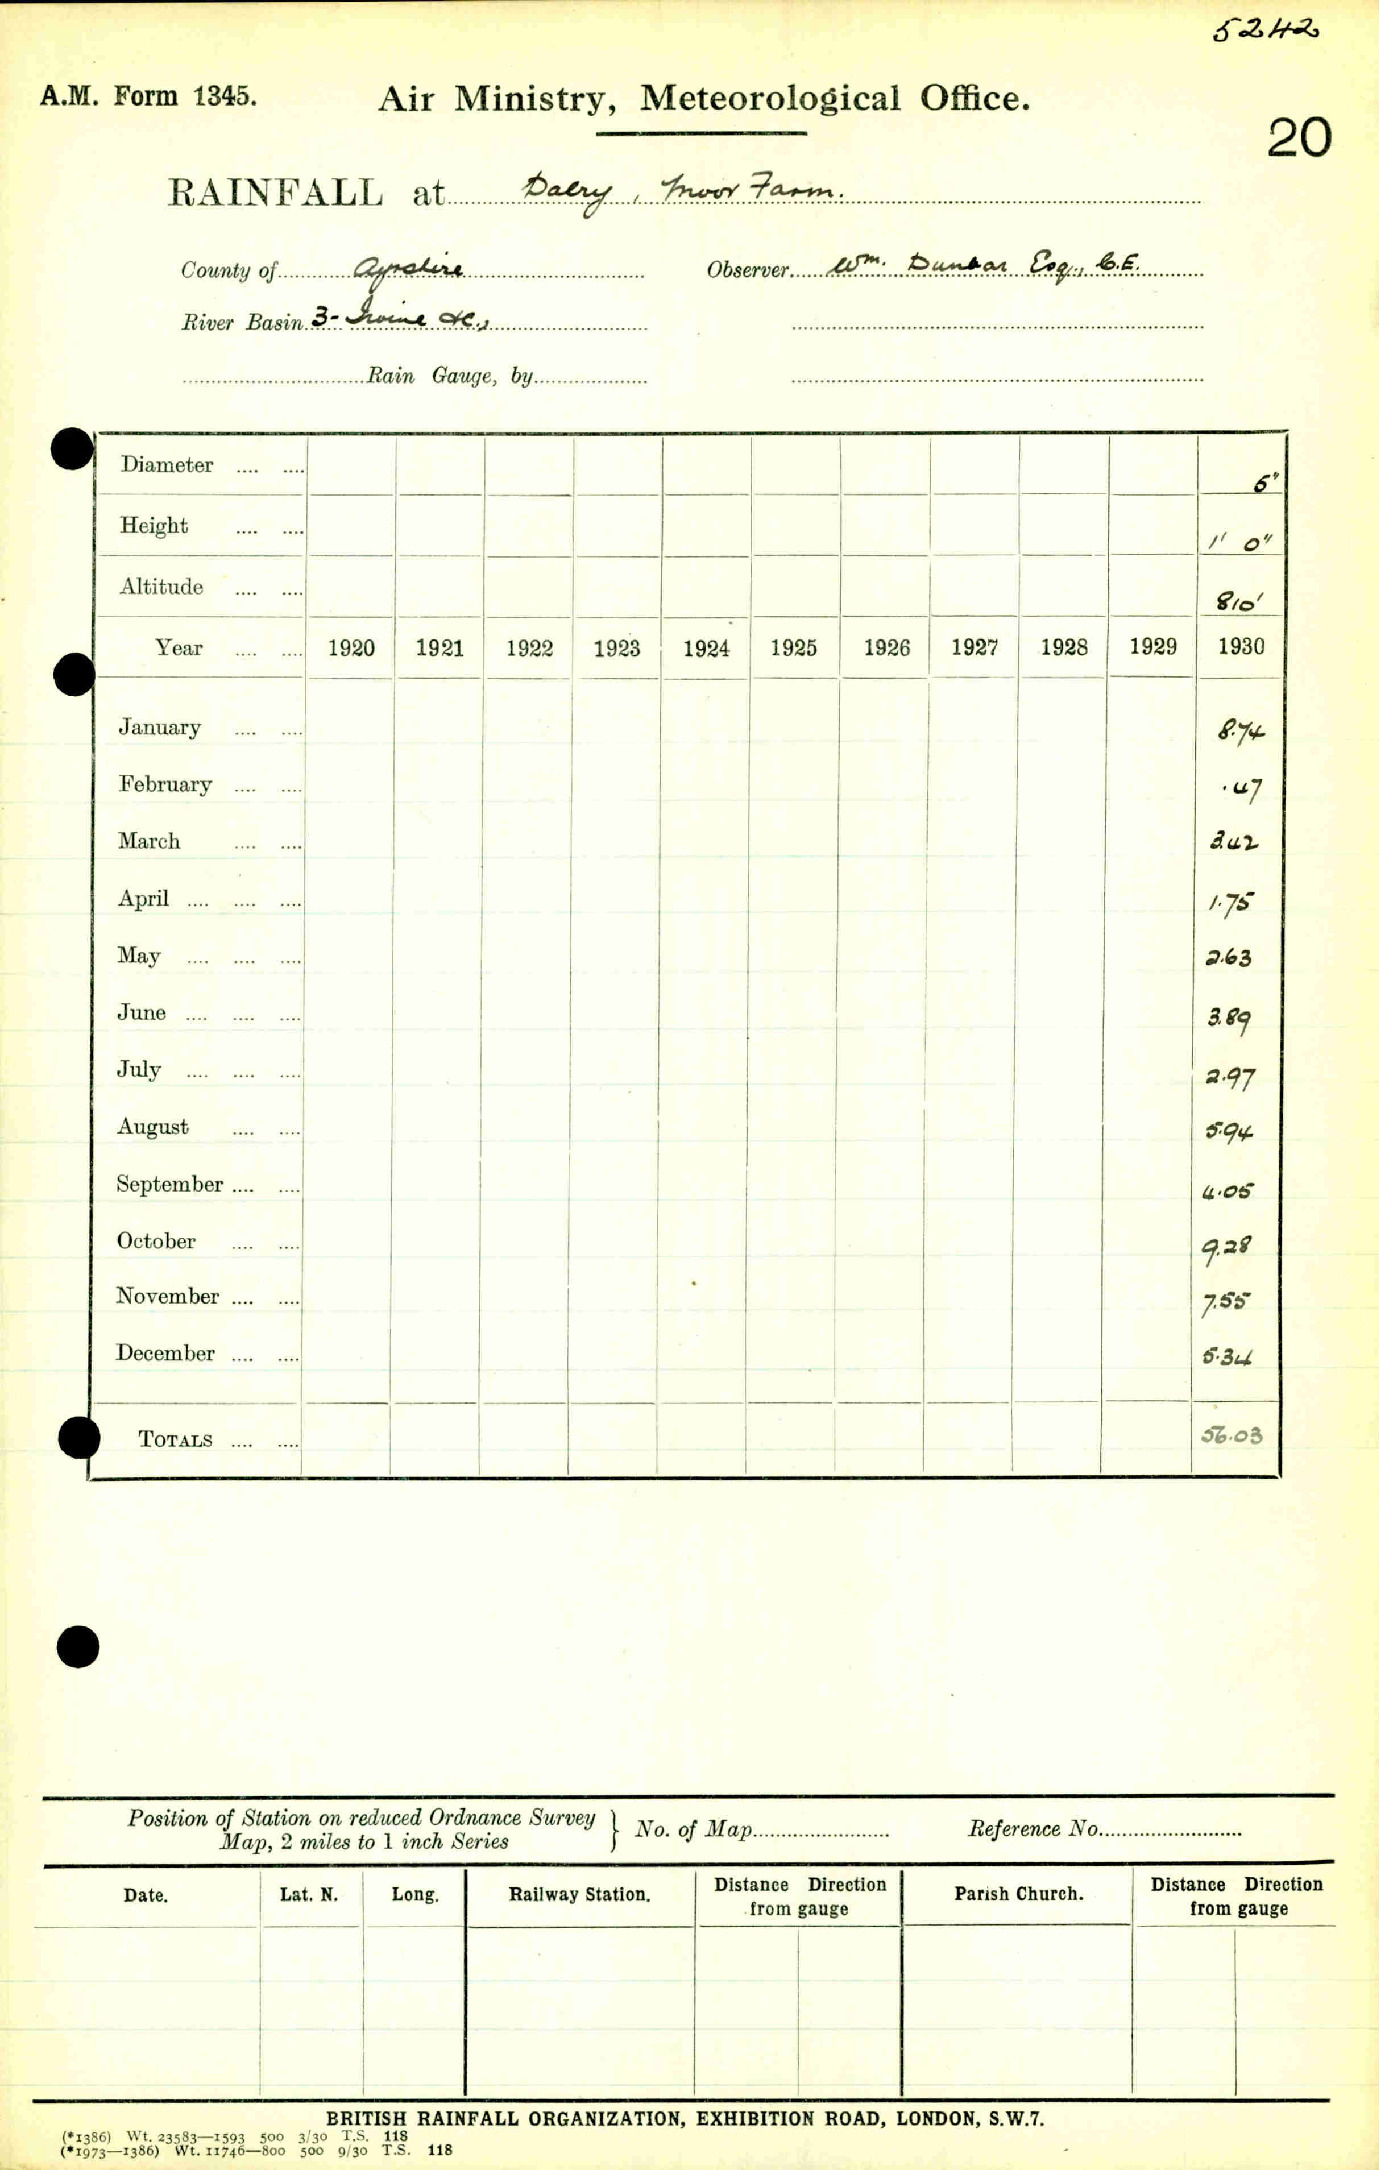 5242
A.M. Form 1345. Air Ministry, Meteorological Office.
20
RAINFALL at Dalry, Moor Farm.
County of Ayrshire Observer Wm. Dunbar Esq., C.E.
River Basin 3- Irvine &c.,
Rain Gauge, by
Diameter .... .... 5"
Height .... .... 1' 0"
Altitude .... .... 810'
Year .... .... 1920 1921 1922 1923 1924 1925 1926 1927 1928 1929 1930
January .... .... 8.74
February .... .... .47
March .... .... 3.42
April .... .... .... 1.75
May .... .... .... 2.63
June .... .... .... 3.89
July .... .... .... 2.97
August .... .... 5.94
September .... .... 4.05
October .... .... 9.28
November .... .... 7.55
December .... .... 5.34
TOTALS .... .... 56.03
Position of Station on reduced Ordnance Survey
Map, 2 miles to 1 inch Series } No. of Map Reference No.
Date. Lat. N. Long. Railway Station. Distance Direction from gauge Parish Church. Distance Direction from gauge
BRITISH RAINFALL ORGANIZATION, EXHIBITION ROAD, LONDON, S.W.7.
(*1386) Wt. 23583—1593 500 3/30 T.S. 118
(*1973—1386) Wt. 11746—800 500 9/30 T.S. 118